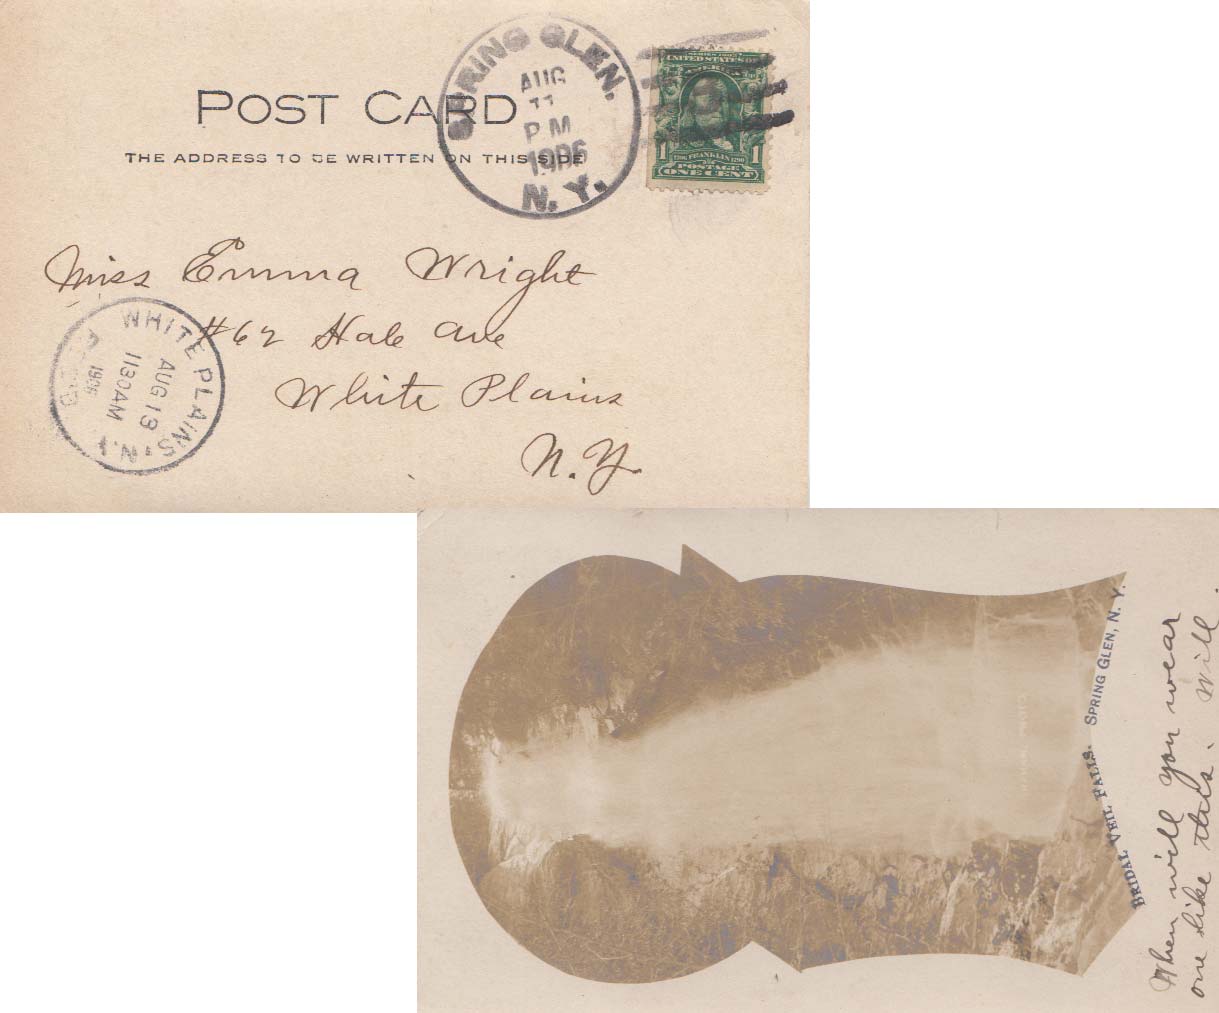 POST CARD
THE ADDRESS TO BE WRITTEN ON THIS SIDE
SPRING GLEN.
AUG
11
P M
1906
N. Y.
SERIES 1902
UNITED STATES OF
AMERICA
1 1706 FRANKLIN 1790 1
POSTAGE
ONE CENT
Miss Emma Wright
#62 Hale Ave
White Plains
N.Y.
WHITE PLAINS, N.Y.
AUG 13
1130AM
1906
BRIDAL VEIL FALLS. SPRING GLEN, N. Y.
When will you wear
one like this. Will.